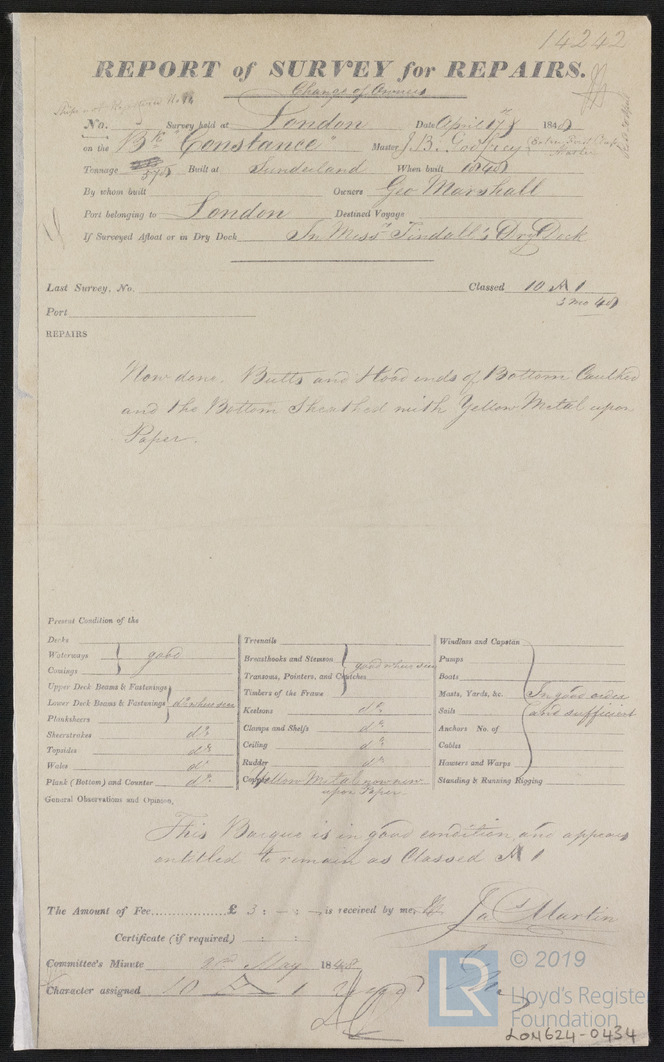 14242
REPORT of SURVEY for REPAIRS.
Change of Owners
No. Survey held at London Date April 17th 1848
on the Bk "Constance" Master J. B. Godfrey
Tonnage 578 Built at Sunderland When built 1848
By whom built Owners Geo Marshall
Port belonging to London Destined Voyage
If Surveyed Afloat or in Dry Dock In Messrs Tindall's Dry Dock
Last Survey, No. Classed 10 A 1
3 mo 48
Port
REPAIRS
Now done. Butts and Hood ends of Bottom Caulked
and the Bottom Sheathed with Yellow Metal upon
Paper.
Present Condition of the
Decks
Waterways good
Comings
Upper Deck Beams & Fastenings
Lower Deck Beams & Fastenings do where seen
Planksheers
Sheerstrakes do
Topsides do
Wales do
Plank (Bottom) and Counter do
Treenails
Breasthooks and Stemson good where seen
Transoms, Pointers, and Crutches
Timbers of the Frame
Keelsons do
Clamps and Shelfs do
Ceiling do
Rudder do
Copper Yellow Metal now new
upon Paper
Windlass and Capstan
Pumps
Boats
Masts, Yards, &c. In good order
Sails and sufficient
Anchors No. of
Cables
Hawsers and Warps
Standing & Running Rigging
General Observations and Opinion,
This Barque is in good condition, and appears
entitled to remain as Classed A 1
The Amount of Fee £ 3 : - : - is received by me, Jas Martin
Certificate (if required) : :
Committee's Minute 2nd May 1848
Character assigned 10 A 1
LR © 2019
Lloyd's Register
Foundation
LON624-0434